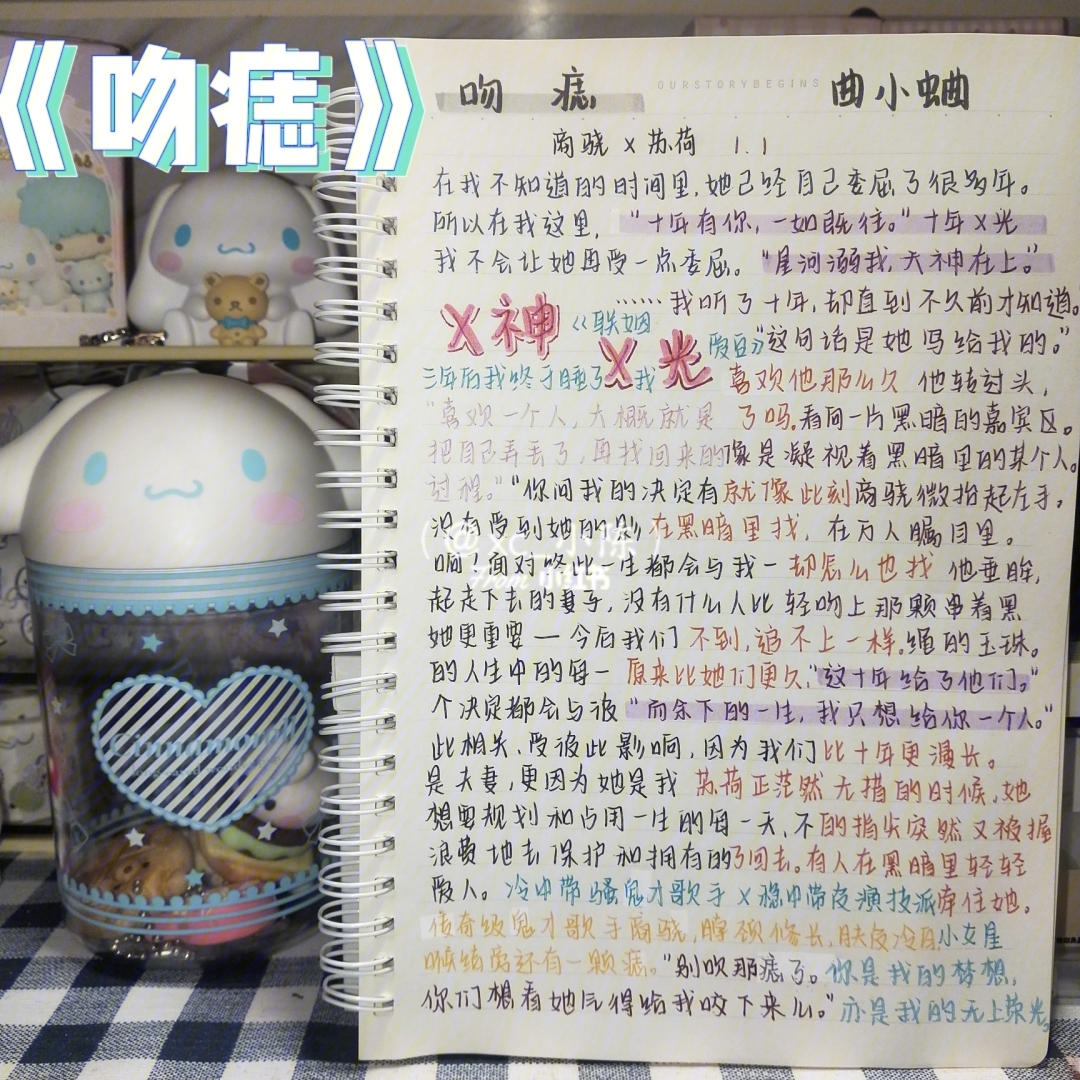 《吻痣》
OURSTORYBEGINS
吻 痣 曲小蛐
商骁 x 苏荷 1.1
在我不知道的时间里,她已经自己委屈了很多年。
所以在我这里, “十年有你,一如既往。”十年X光
我不会让她再受一点委屈。“星河溺我,大神在上。”
……我听了十年,却直到不久前才知道。
X神 《联姻 “这句话是她写给我的。”
三年后我终于睡了 X光 喜欢他那么久 他转过头,
“喜欢一个人,大概就是 了吗。看向一片黑暗的嘉宾区。
把自己弄丢了,再找回来的 像是凝视着黑暗里的某个人。
过程。”“你问我的决定有 就像此刻 商骁微抬起左手。
没有受到她的影 在黑暗里找, 在万人瞩目里。
响,面对将此一生都会与我一 却怎么也找 他垂眸,
起走下去的妻子,没有什么人比 轻吻上那颗串着黑
她更重要—今后我们 不到,追不上一样。绳的玉珠。
的人生中的每一 原来比她们更久,“这十年给了他们。”
个决定都会与彼 “而余下的一生,我只想给你一个人。”
此相关、受彼此影响,因为我们 比十年更漫长。
是夫妻,更因为她是我 苏荷正茫然无措的时候,她
想要规划和占用一生的每一天,不 的指尖突然又被握
浪费地去保护和拥有的 了回去。有人在黑暗里轻轻
爱人。 冷中带骚鬼才歌手 x 稳中带皮演技派 牵住她。
传奇级鬼才歌手商骁,脖颈修长,肤皮冷白 小女星
喉结旁还有一颗痣。“别吹那痣了。 你是我的梦想,
你们想看她气得给我咬下来么。” 亦是我的无上荣光。
@xc_小陈
From 小红书
Cinnamoroll